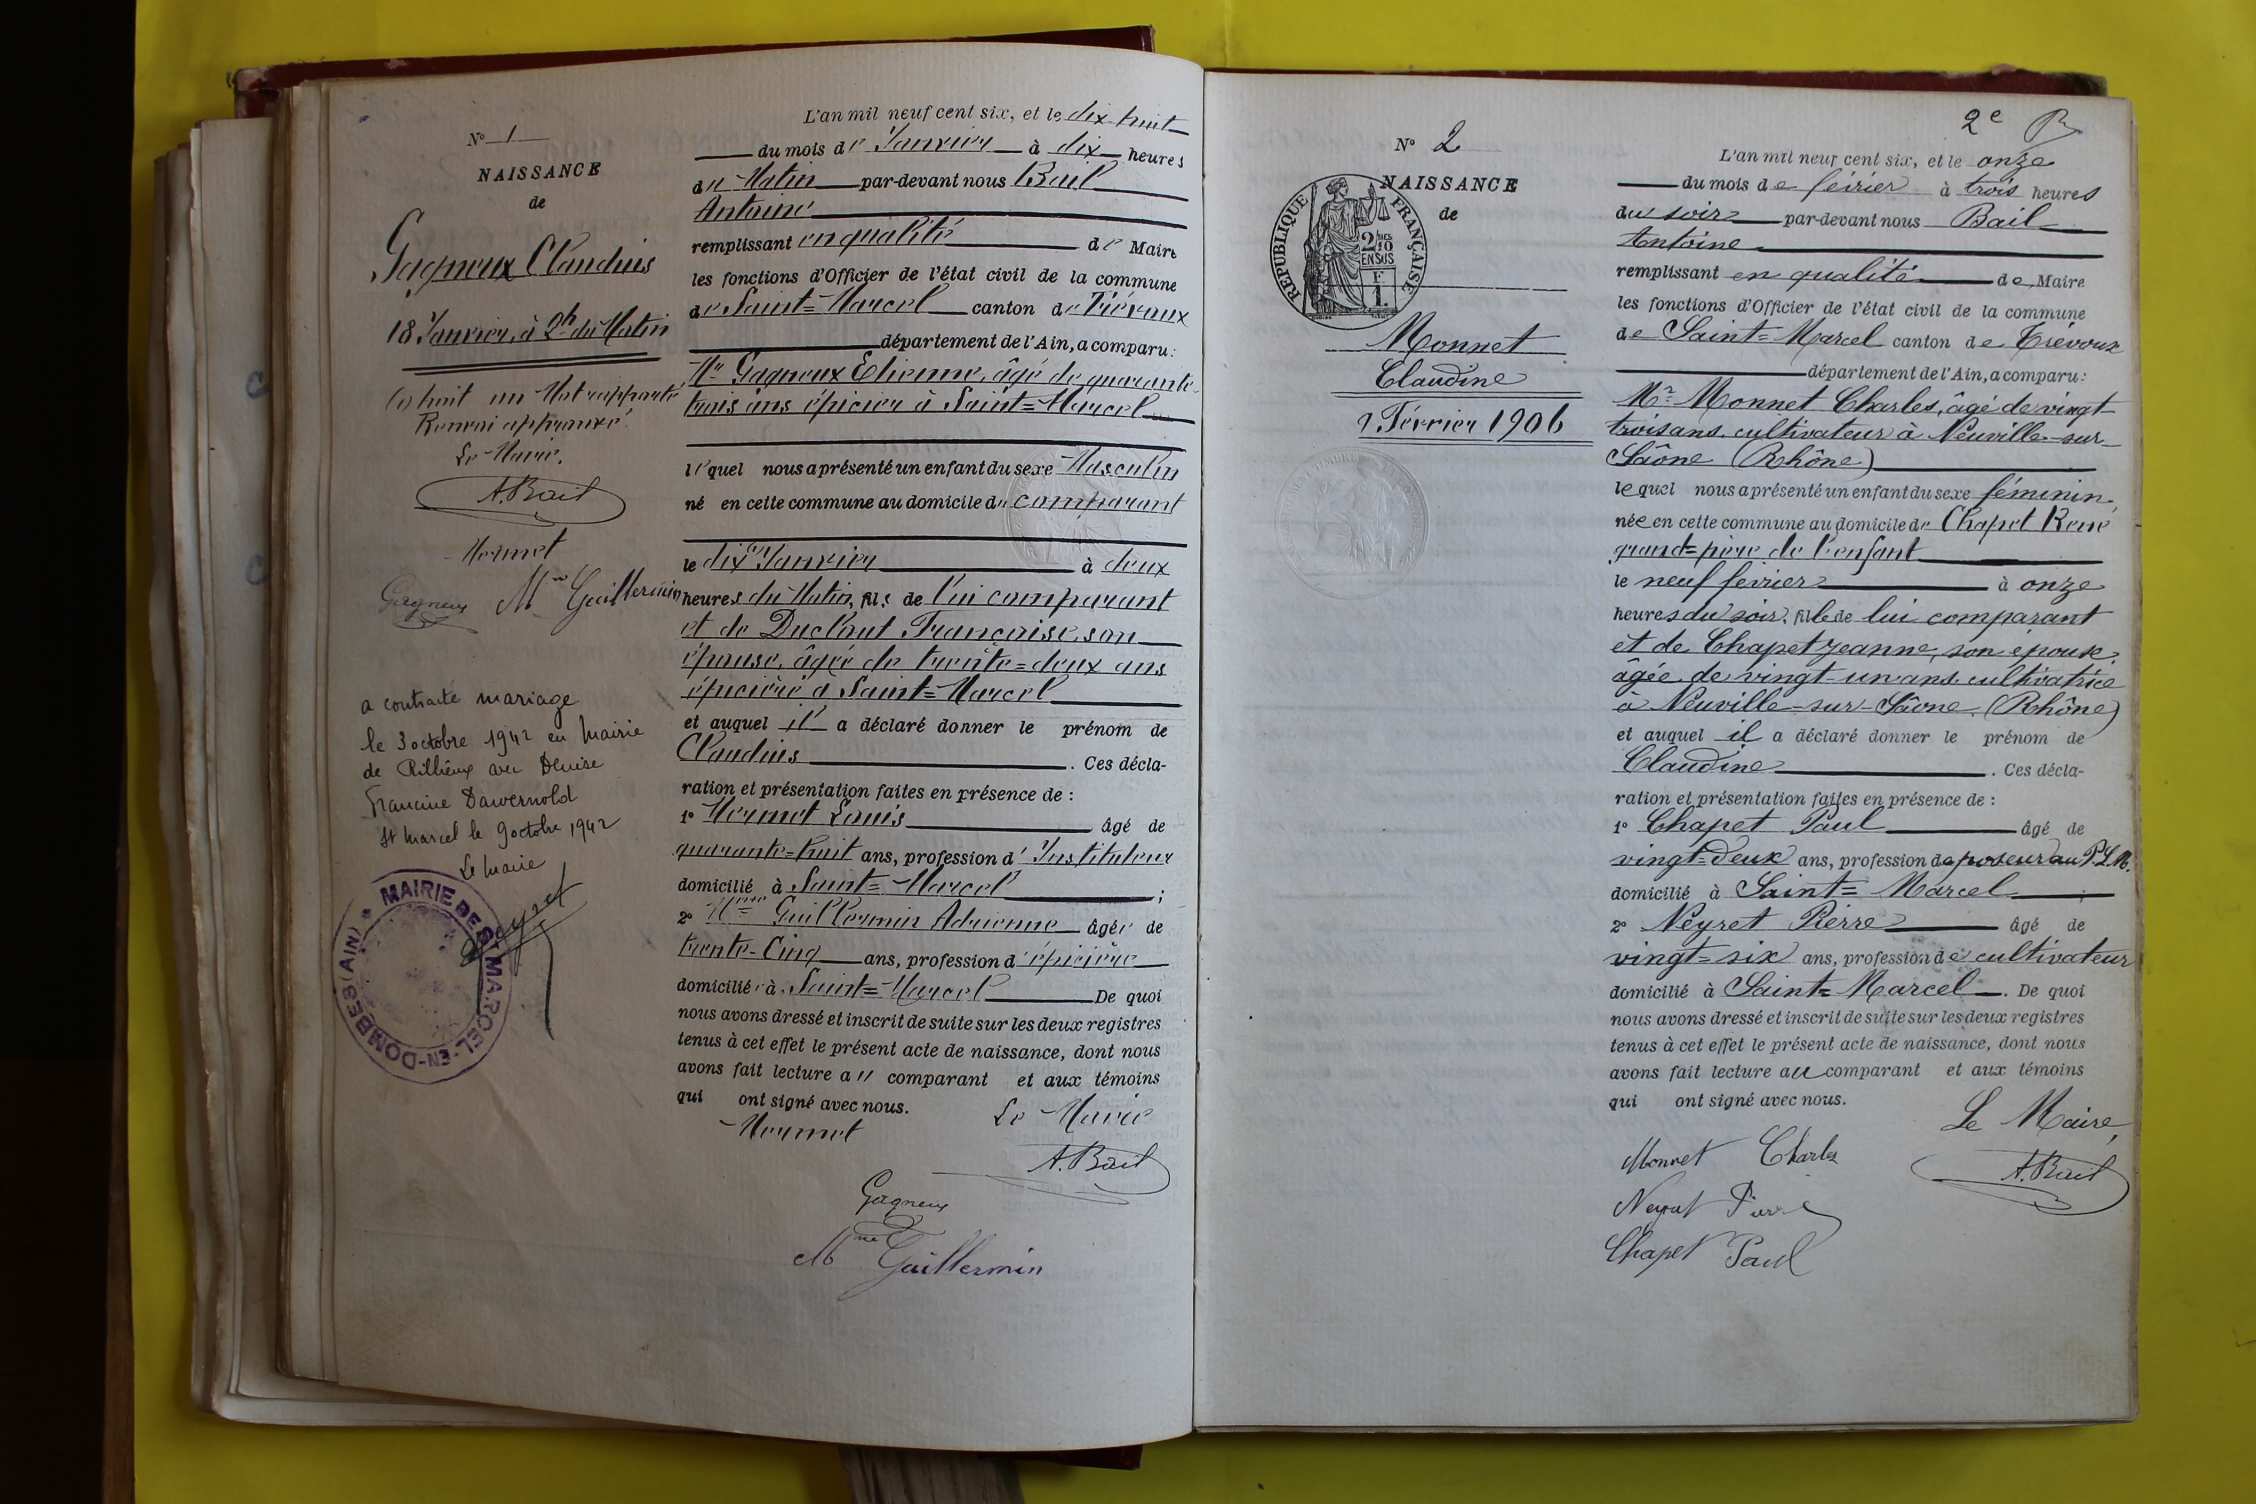 N° 1
NAISSANCE
de
Gagneux Claudius
18 Janvier, à 2h du Matin
(1) huit un Mot rapporté
Renvoi approuvé.
Le Maire,
A. Bail
Mermet
Gagneux Mme Guillermin
a contracté mariage
le 3 octobre 1942 en Mairie
de Rillieux avec Denise
Francine
St Marcel le 9 octobre 1942
Le Maire
MAIRIE DE ST MARCEL-EN-DOMBES (AIN)
L'an mil neuf cent six, et le dix-huit
du mois de Janvier à dix heures
du Matin par-devant nous Bail
Antoine
remplissant en qualité de Maire
les fonctions d'Officier de l'état civil de la commune
de Saint=Marcel canton de Trévoux
département de l'Ain, a comparu:
Mr Gagneux Etienne, âgé de quarante
trois ans épicier à Saint=Marcel
lequel nous a présenté un enfant du sexe Masculin
né en cette commune au domicile du comparant
le dix (1) Janvier à deux
heures du Matin, fils de lui comparant
et de Duclout Françoise son
épouse, âgée de trente=deux ans
épicière à Saint=Marcel
et auquel il a déclaré donner le prénom de
Claudius. Ces décla-
ration et présentation faites en présence de :
1° Mermet Louis âgé de
quarante=huit ans, profession d'Instituteur
domicilié à Saint=Marcel ;
2° Mme Guillermin Adrienne âgée de
trente-Cinq ans, profession d'épicière
domiciliée à Saint=Marcel De quoi
nous avons dressé et inscrit de suite sur les deux registres
tenus à cet effet le présent acte de naissance, dont nous
avons fait lecture au comparant et aux témoins
qui ont signé avec nous.
Le Maire
Mermet
A. Bail
Gagneux
Mme Guillermin
2e
N° 2
NAISSANCE
de
RÉPUBLIQUE FRANÇAISE
2/10
EN SUS
F
1.
Monnet
Claudine
9 Février 1906
L'an mil neuf cent six, et le onze
du mois de février à trois heures
du soir par-devant nous Bail
Antoine
remplissant en qualité de Maire
les fonctions d'Officier de l'état civil de la commune
de Saint=Marcel canton de Trévoux
département de l'Ain, a comparu:
Mr Monnet Charles, âgé de vingt-
trois ans, cultivateur à Neuville-sur-
Saône (Rhône)
lequel nous a présenté un enfant du sexe féminin,
née en cette commune au domicile de Chapet René
grand=père de l'enfant
le neuf février à onze
heures du soir, fille de lui comparant
et de Chapet Jeanne, son épouse,
âgée de vingt-un ans cultivatrice
à Neuville-sur-Saône (Rhône)
et auquel il a déclaré donner le prénom de
Claudine. Ces décla-
ration et présentation faites en présence de :
1° Chapet Paul âgé de
vingt=deux ans, profession de poseur au P.L.M.
domicilié à Saint=Marcel ;
2° Neyret Pierre âgé de
vingt=six ans, profession de cultivateur
domicilié à Saint=Marcel. De quoi
nous avons dressé et inscrit de suite sur les deux registres
tenus à cet effet le présent acte de naissance, dont nous
avons fait lecture au comparant et aux témoins
qui ont signé avec nous.
Le Maire,
Monnet Charles
A. Bail
Neyret Pierre
Chapet Paul